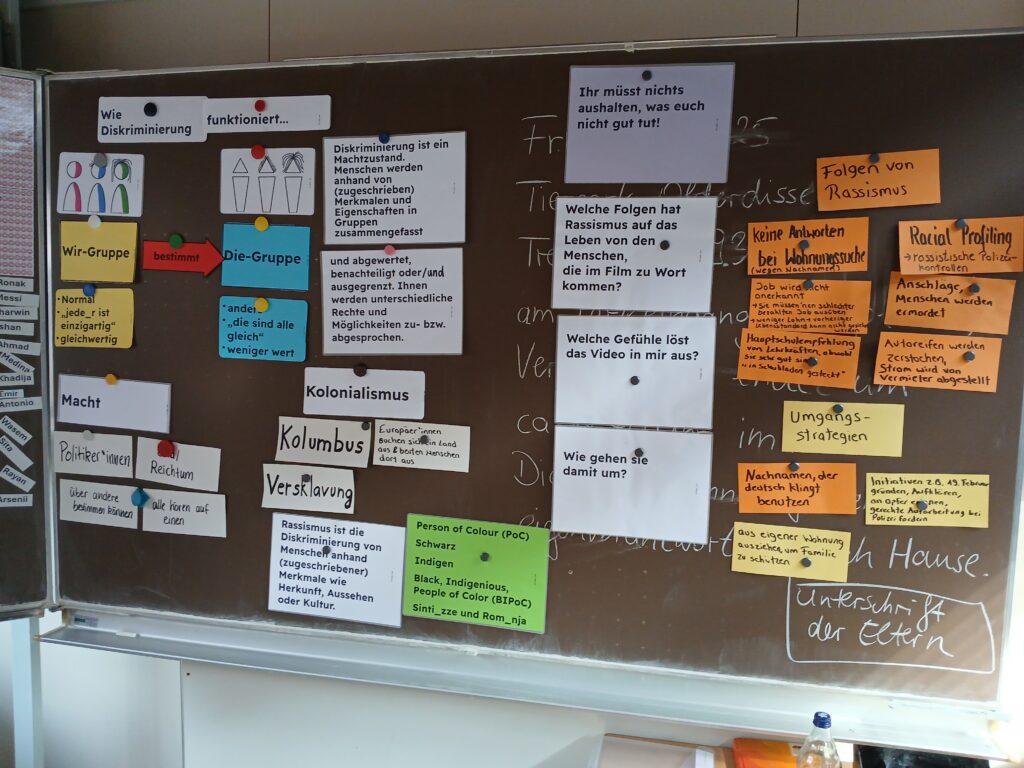 Wie
Diskriminierung
funktioniert...
Wir-Gruppe
bestimmt
Die-Gruppe
• Normal
• "jede_r ist
einzigartig"
• gleichwertig
• „die sind alle
gleich“
• weniger wert
Diskriminierung ist ein
Machtzustand.
Menschen werden
anhand von
(zugeschrieben)
Merkmalen und
Eigenschaften in
Gruppen
zusammengefasst
und abgewertet,
benachteiligt oder/und
ausgegrenzt. Ihnen
werden unterschiedliche
Rechte und
Möglichkeiten zu- bzw.
abgesprochen.
Macht
Politiker*innen
Reichtum
über andere
bestimmen können
alle hören auf
einen
Kolonialismus
Kolumbus
Europäer*innen
suchen sich ein Land
aus & beuten Menschen
dort aus
Versklavung
Rassismus ist die
Diskriminierung von
Menschen anhand
(zugeschriebener)
Merkmale wie
Herkunft, Aussehen
oder Kultur.
Person of Colour (PoC)
Schwarz
Indigen
Black, Indigenious,
People of Color (BIPoC)
Sinti_zze und Rom_nja
Ihr müsst nichts
aushalten, was euch
nicht gut tut!
Welche Folgen hat
Rassismus auf das
Leben von den
Menschen,
die im Film zu Wort
kommen?
Welche Gefühle löst
das Video in mir aus?
Wie gehen sie
damit um?
Folgen von
Rassismus
keine Antworten
bei Wohnungssuche
(wegen Nachnamen)
Racial Profiling
→ rassistische Polizei-
kontrollen
Job wird nicht
anerkannt
→ Sie müssen'nen schlechter
bezahlten Job ausüben
→ weniger Lohn → vorheriger
Lebensstandard kann nicht
Anschläge,
Menschen werden
ermordet
Hauptschulempfehlung
von Lehrkräften, obwohl
sie sehr gut sind
"in Schubladen gesteckt"
Autoreifen werden
zerstochen,
Strom wird von
Vermieter abgestellt
Umgangs-
strategien
Nachnamen, der
deutsch klingt
benutzen
Initiativen z.B. 19. Februar
gründen, Aufklären,
an Opfer erinnern,
gerechte Aufarbeitung bei
Polizei fordern
aus eigener Wohnung
ausziehen, um Familie
zu schützen
Hause.
Unterschrift
der Eltern
Ronak
Messi
Ahmad
Medina
Khadija
Emir
Antonio
Wasem
Sita
Rayan
Arsenii